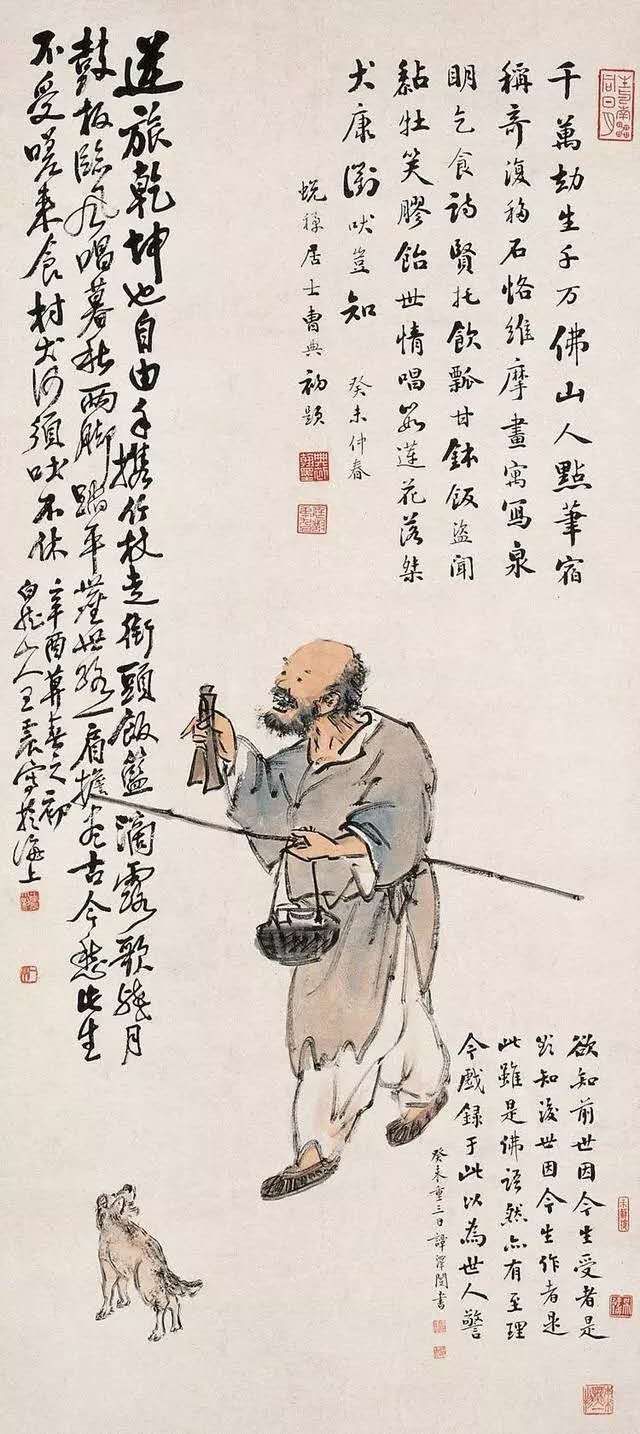 千萬劫生千万佛山人點筆宿
稱奇復移石恪維摩畫寓寫泉
明乞食詩賢托飲瓢甘鉢飯盜聞
黏牡笑膠飴世情唱蓮花落桀
犬康衢吠豈知
癸未仲春
蜕禪居士曹典初題
逆旅乾坤也自由手携竹杖走街頭飯籃滴露歌殘月
鼓板臨風唱暮秋兩脚踏平塵世路一肩擔盡古今愁此生
不受嗟来食村犬何須吠不休
辛酉暮春之初
白龍山人王震寫於海上
欲知前世因今生受者是
欲知後世因今生作者是
此雖是佛語然亦有至理
今戲録于此以為世人警
癸未重三日譚澤闓書